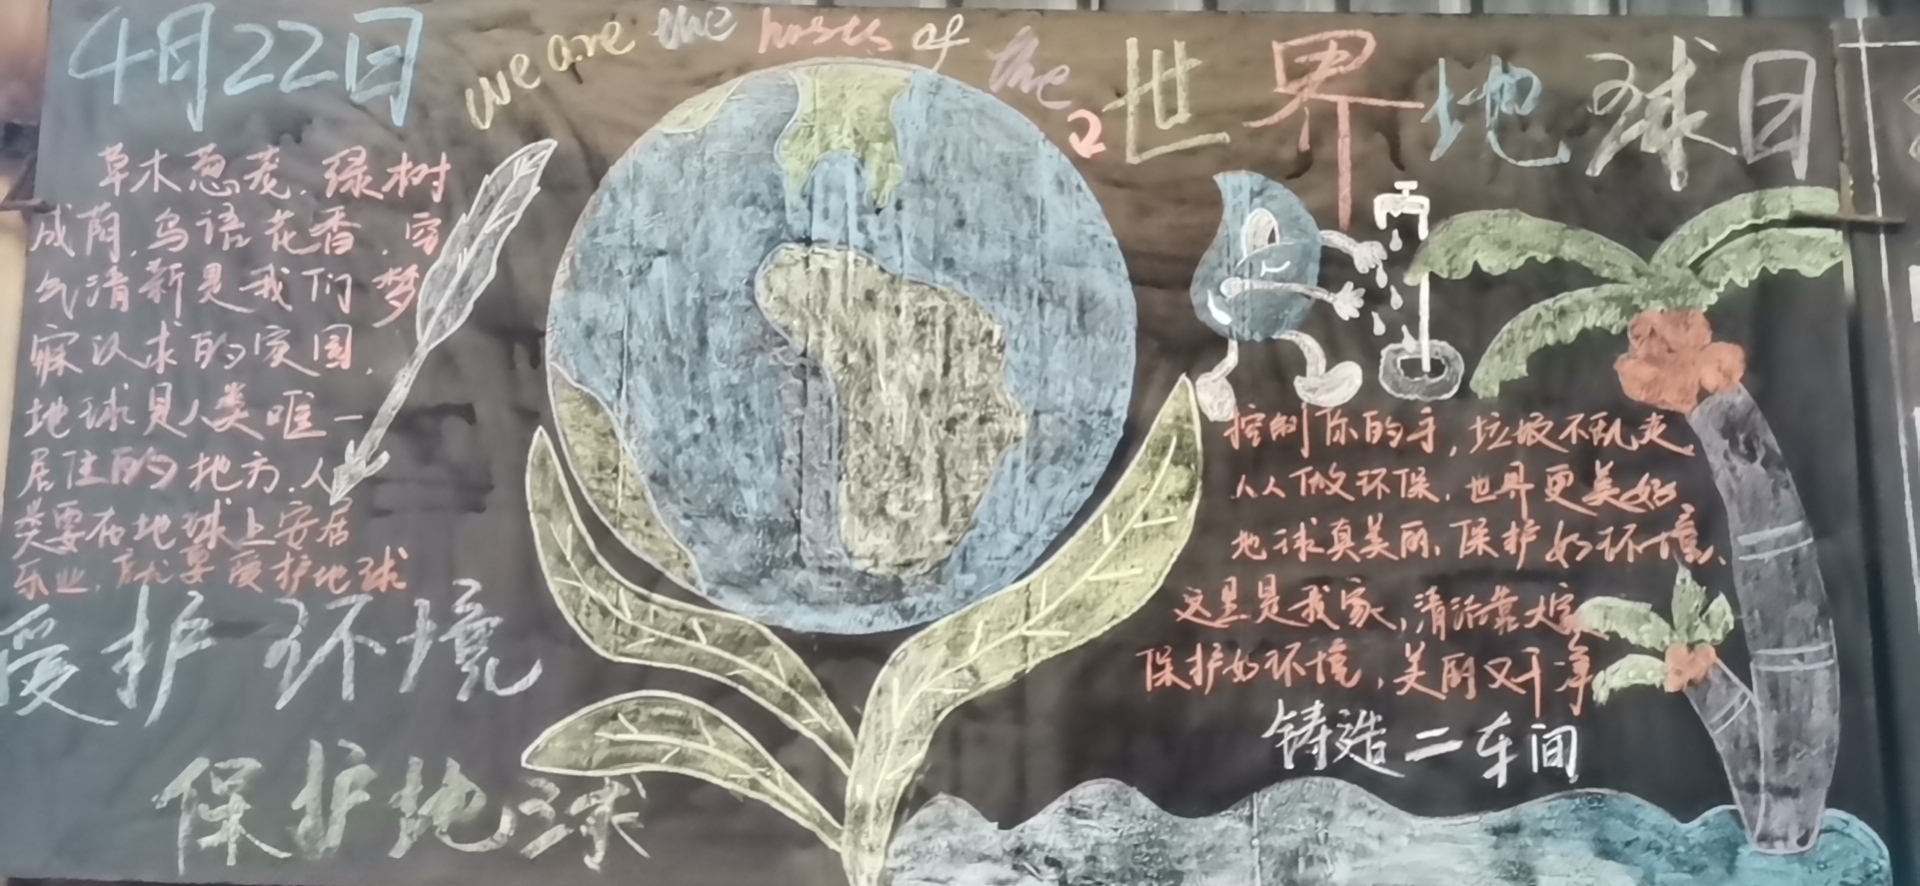 4月22日
we are the hosts of the
世界地球日
草木葱茏,绿树
成荫,鸟语花香,空
气清新是我们梦
寐以求的家园,
地球是人类唯一
居住的地方,人
类要在地球上安居
乐业,就要爱护地球
爱护环境
保护地球
控制你的手,垃圾不乱丢,
人人做环保,世界更美好,
地球真美丽,保护好环境、
这里是我家,清洁靠大家
保护好环境,美丽又干净
铸造二车间